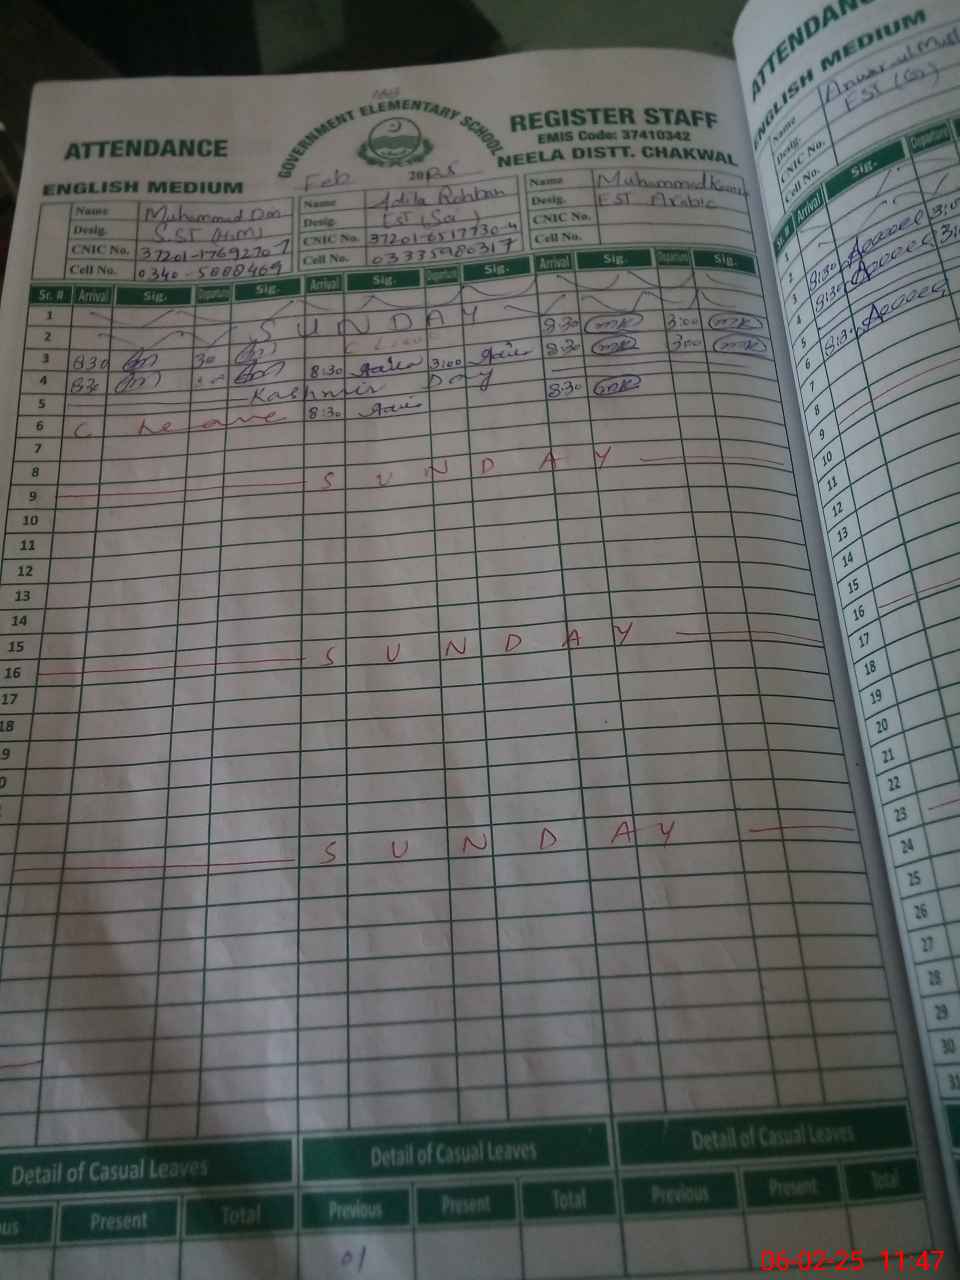 ATTENDANCE
GOVERNMENT ELEMENTARY SCHOOL
REGISTER STAFF
EMIS Code: 37410342
NEELA DISTT. CHAKWAL
ENGLISH MEDIUM
Feb 2025
Name Muhammad Name Adila Name Muhammad
Desig. S.ST (H.M) Desig. EST (Sci) Desig. EST Arabic
CNIC No. CNIC No. CNIC No.
Cell No. 0340-5888469 Cell No. 03335980317 Cell No.
Sr. # Arrival Sig. Departure Sig. Arrival Sig. Departure Sig. Arrival Sig. Departure Sig.
1
2 SUNDAY
3 830 30 C Leave 8:30 3:00
4 830 8:30 3:00 8:30 3:00
5 Kashmir Day
6 C Leave 8:30 8:30
7
8
9 SUNDAY
10
11
12
13
14
15
16 SUNDAY
17
18
9
0
SUNDAY
Detail of Casual Leaves Detail of Casual Leaves Detail of Casual Leaves
ous Present Total Previous Present Total Previous Present Total
01
ATTENDANC
ENGLISH MEDIUM
Name
Desig. EST (G)
CNIC No.
Cell No.
Sr. # Arrival Sig. Departure
1
2
3 8:30 3:0
4 8:30
5
6 8:30
7
8
9
10
11
12
13
14
15
16
17
18
19
20
21
22
23
24
25
26
27
28
29
30
31
06-02-25 11:47